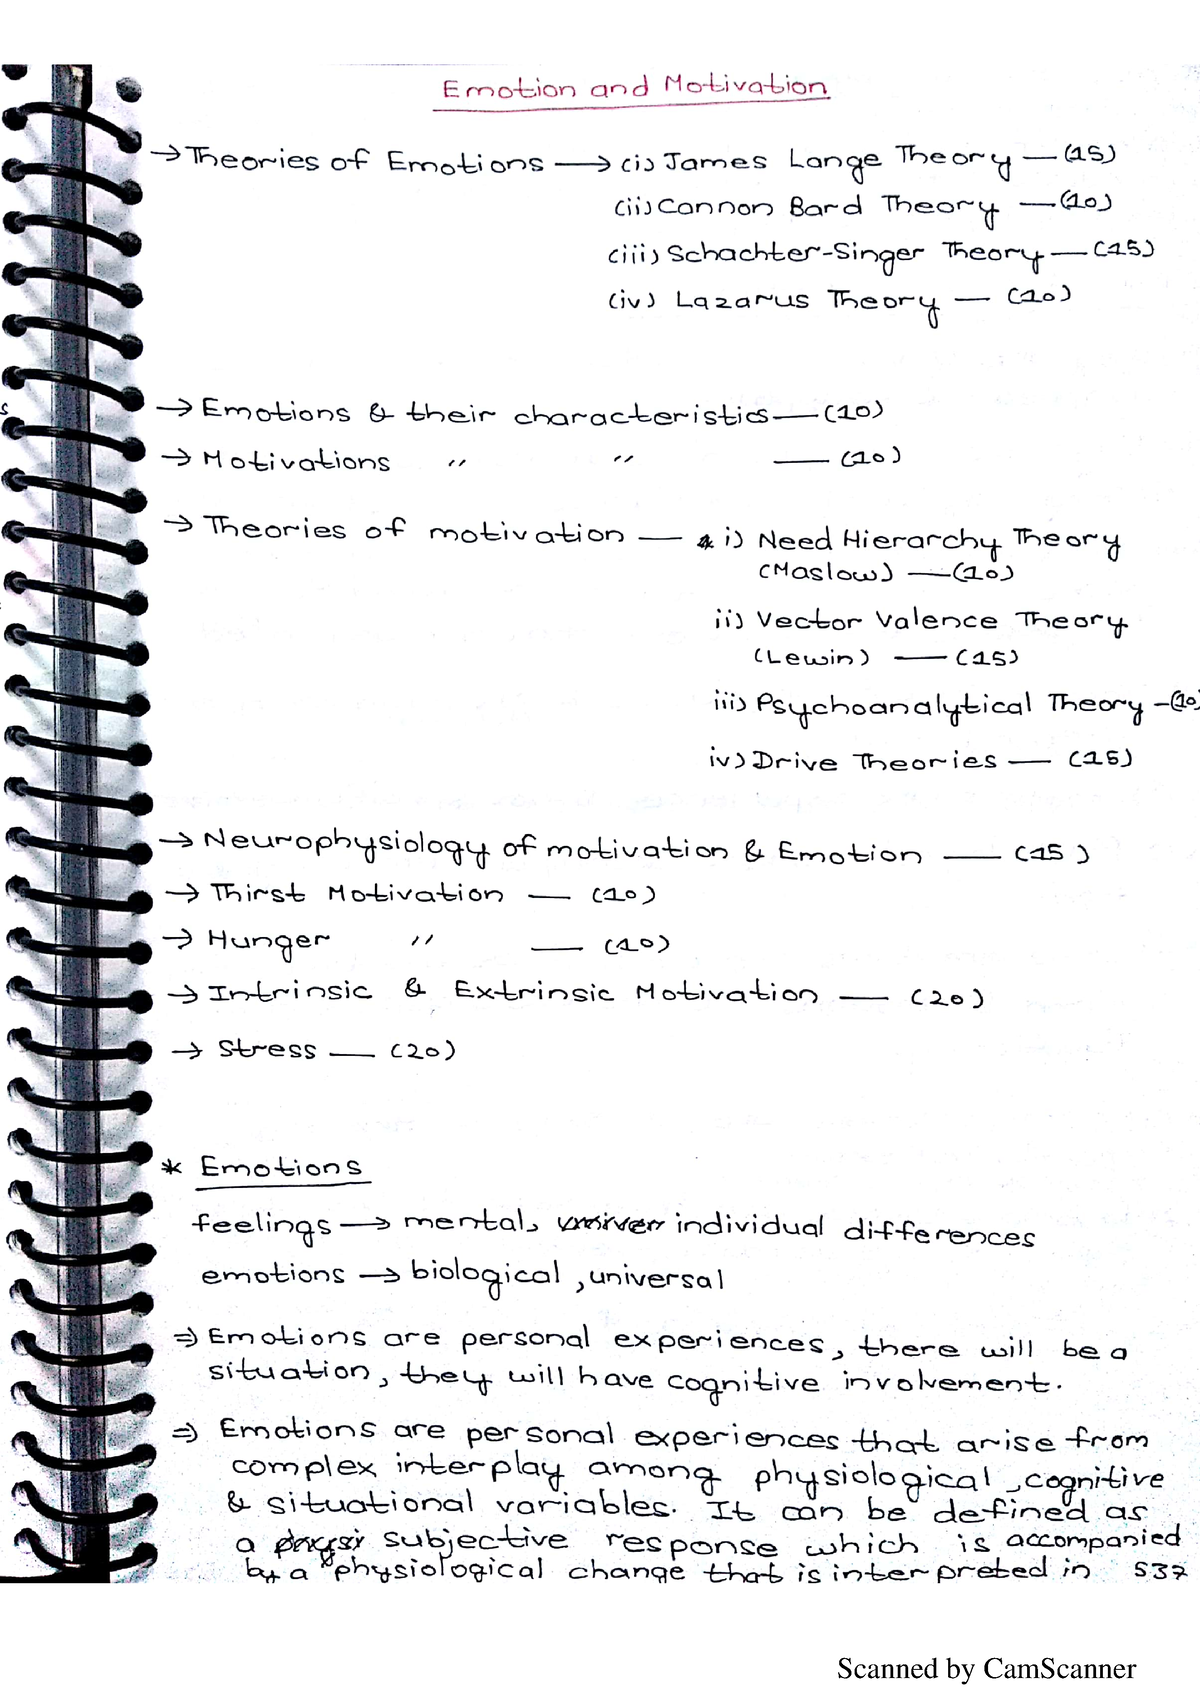 Emotion and Motivation
→ Theories of Emotions → (i) James Lange Theory — (15)
(ii) Cannon Bard Theory — (10)
(iii) Schachter-Singer Theory — (15)
(iv) Lazarus Theory — (10)
s
→ Emotions & their characteristics — (10)
→ Motivations " " — (10)
→ Theories of motivation — i) Need Hierarchy Theory
(Maslow) — (10)
ii) Vector Valence Theory
(Lewin) — (15)
iii) Psychoanalytical Theory — (10)
iv) Drive Theories — (15)
→ Neurophysiology of motivation & Emotion — (15)
→ Thirst Motivation — (10)
→ Hunger " — (10)
→ Intrinsic & Extrinsic Motivation — (20)
→ Stress — (20)
* Emotions
feelings → mental, individual differences
emotions → biological, universal
⇒ Emotions are personal experiences, there will be a
situation, they will have cognitive involvement.
⇒ Emotions are personal experiences that arise from
complex interplay among physiological, cognitive
& situational variables. It can be defined as
a subjective response which is accompanied
by a physiological change that is interpreted in 537
Scanned by CamScanner